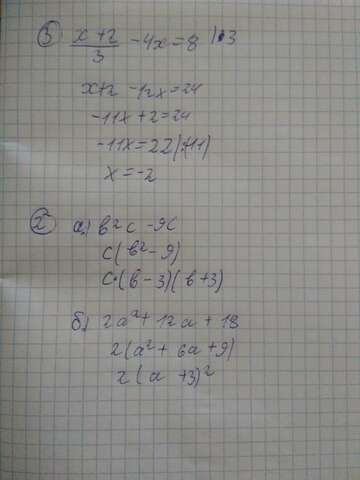 3) (x+2)/3 - 4x = 8 |·3
x+2 -12x = 24
-11x + 2 = 24
-11x = 22 |:(-11)
x = -2
2) а) b²c - 9c
c(b² - 9)
c·(b-3)(b+3)
б) 2a² + 12a + 18
2(a² + 6a + 9)
2(a +3)²